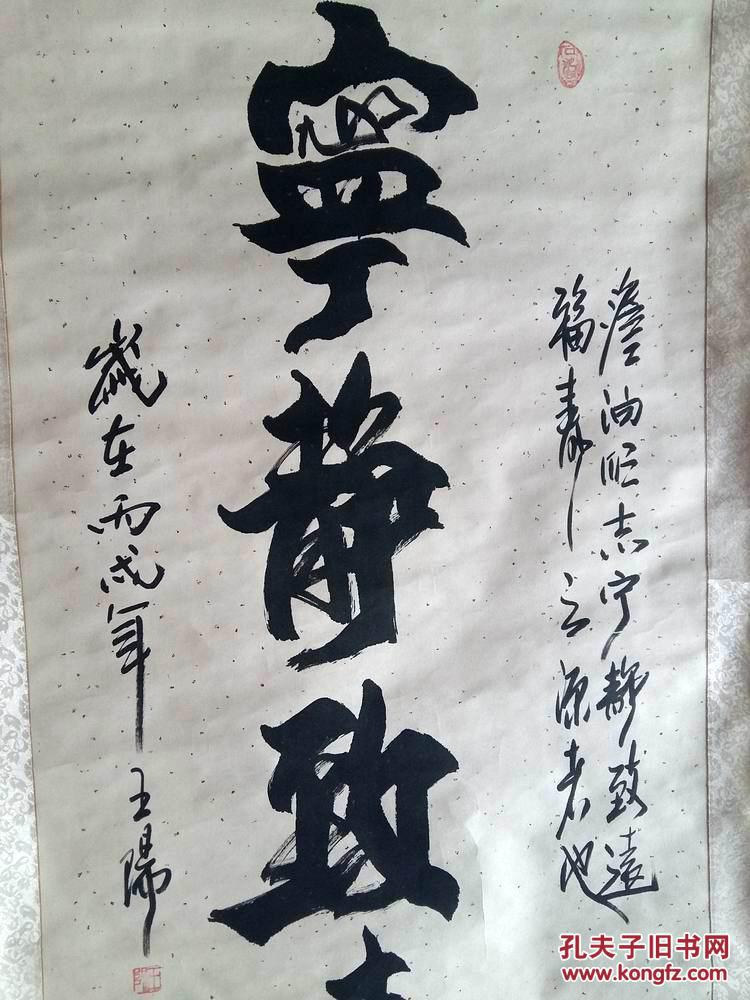 澹泊明志宁静致遠
福寿之源者也
寧静致
歲在丙戌年 王陽
孔夫子旧书网
www.kongfz.com